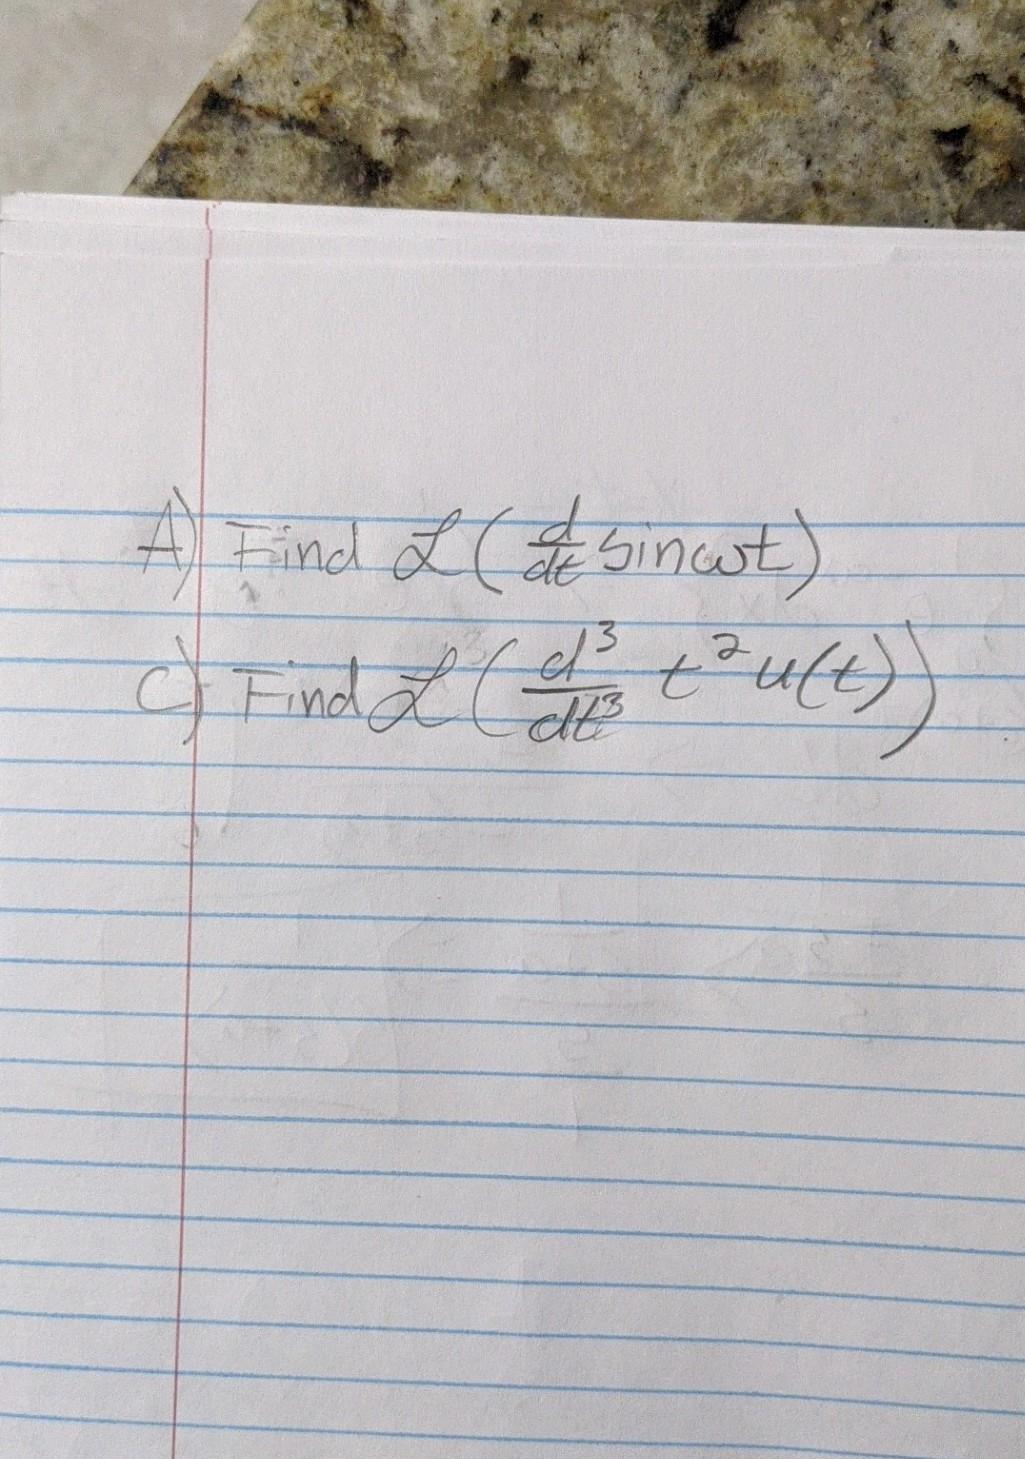 A) Find ℒ(d/dt sin ωt)
C) Find ℒ(d³/dt³ t² u(t))